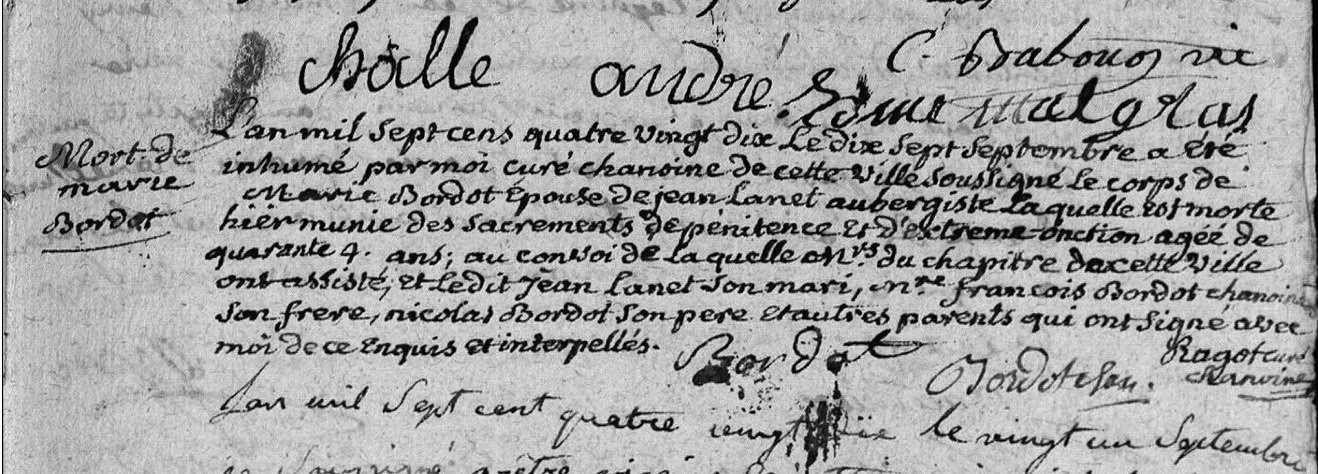 challe andré C. Brabouoz vic
Edme malgras
Mort de
marie
Bordot
L'an mil sept cens quatre vingt dix Le dix sept septembre a été
inhumé par moi curé chanoine de cette ville soussigné le corps de
Marie Bordot Epouse de jean Lanet aubergiste Laquelle est morte
hier munie des sacrements de pénitence et d'extreme-onction agéé de
quarante 4. ans; au convoi de Laquelle Mrs. du chapitre de cette ville
ont assisté, et ledit Jean Lanet son mari, Mre. françois Bordot chanoine
son frere, nicolas Bordot son pere et autres parents qui ont signé avec
moi de ce Enquis et interpellés.
Bordot
Bordot chan.
Ragot curé
chanoine
Lan mil sept cent quatre vingt dix le vingt un septembre